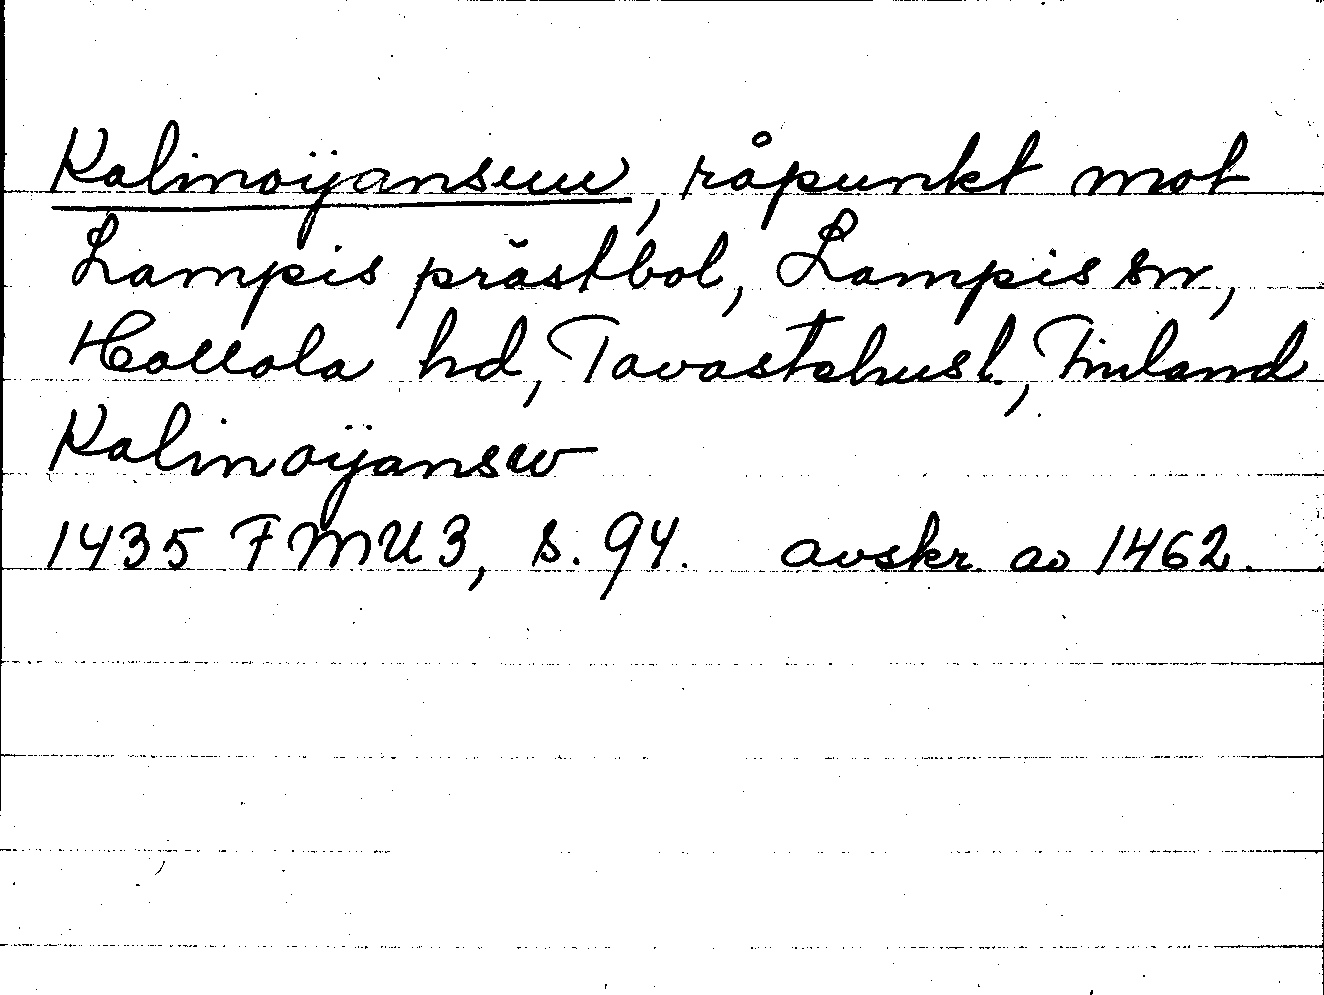 Kalinoijansuu, råpunkt mot
Lampis prästbol, Lampis sn,
Hollola hd, Tavastehusl., Finland
Kalinoijansw
1435 FMU 3, s. 94. avskr. av 1462.